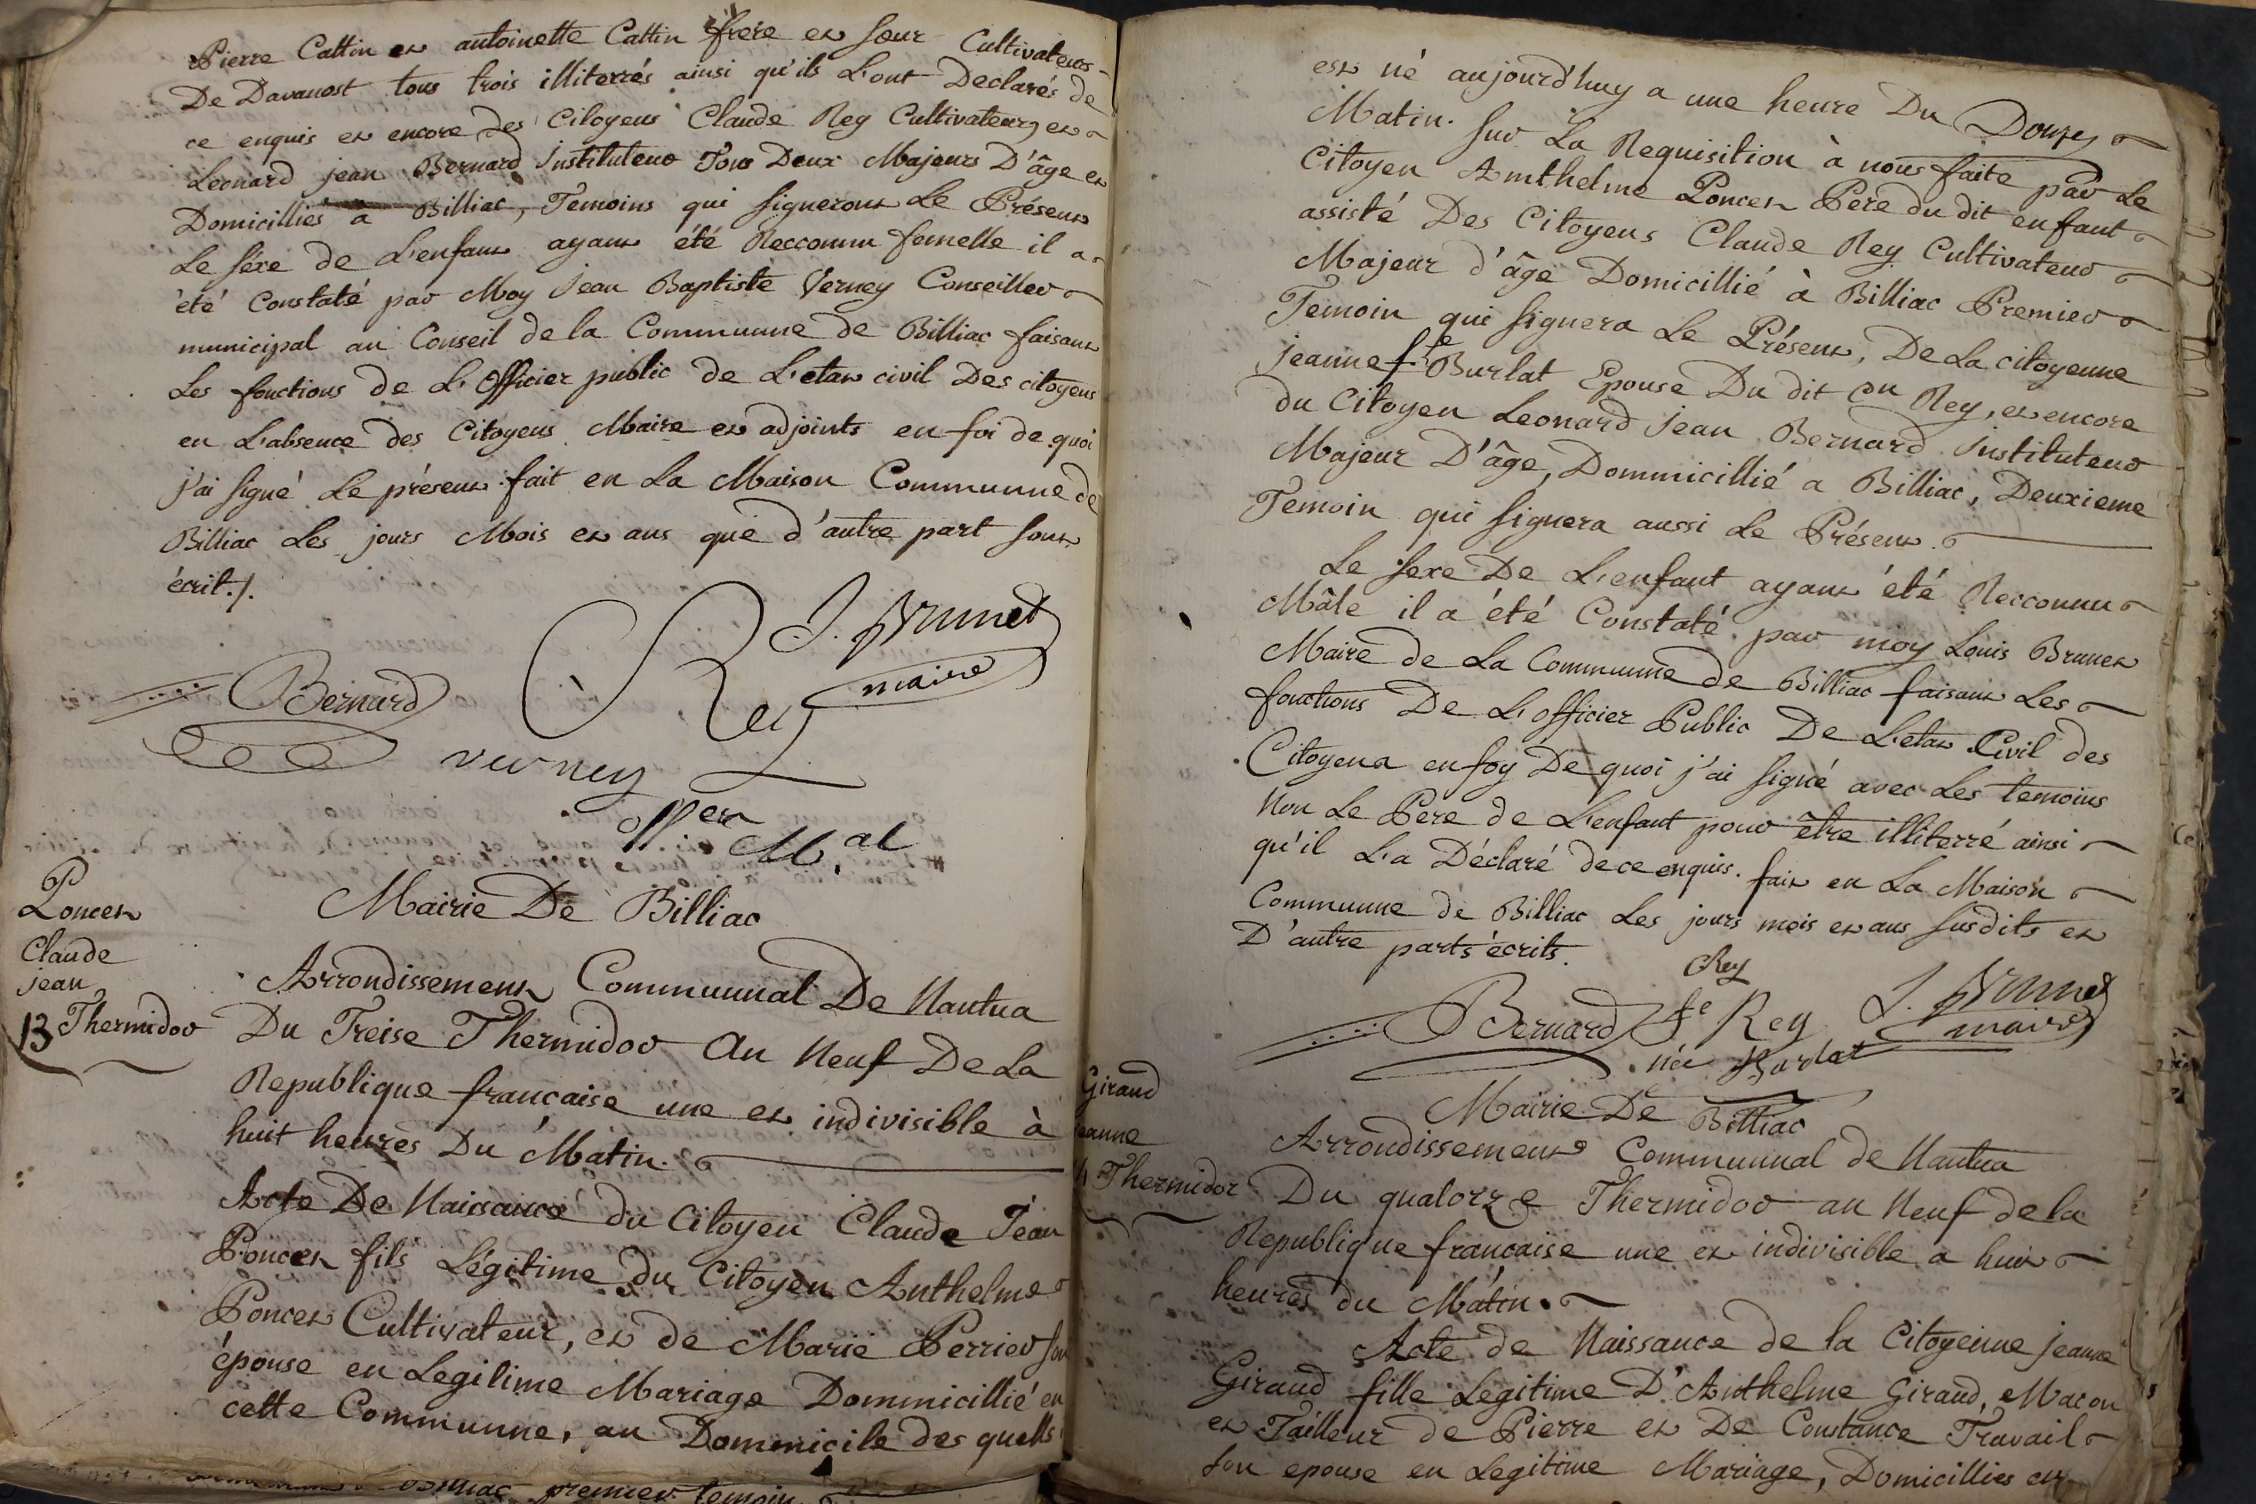 Pierre Cattin et antoinette Cattin frere et sœur Cultivateurs
De Davanost tous trois illiterrés ainsi qu'ils L'ont Declarés de
ce enquis et encore des Citoyens Claude Rey Cultivateur, et
Leonard jean Bernard Instituteur Tous Deux Majeurs D'âge et
Domicilliés à Billiac, Temoins qui signeront Le Présent
Le séxe de L'enfant ayant été Reccommu femelle il a
été Constaté par Moy Jean Baptiste Verney Conseiller
municipal au Conseil de la Commune de Billiac faisant
Les fonctions de L'Officier public de L'etat civil Des citoyens
en L'absence des Citoyens Maire et adjoints en foi de quoi
j'ai signé Le présent fait en La Maison Commune de
Billiac Les jours Mois et ans que d'autre part sont
écrit./.
L. Brunet
maire
Rey
Bernard
verney
Offer M.al
Poncet
Claude
jean
13 Thermidor
Mairie De Billiac
Arrondissement Communnal De Nantua
Du Treise Thermidor an Neuf De La
Republique française une et indivisible à
huit heures Du Matin.
Acte De Naissance du Citoyen Claude Jean
Poncet fils Légitime du Citoyen Anthelme
Poncet Cultivateur, et de Marie Perrier son
épouse en Legitime Mariage Dommicillié en
cette Communne, au Dommicile des quells
Billiac premier temoin
est né aujourd'huy a une heure Du Douze
Matin. sur La Requisition à nous faite par Le
Citoyen Amthelme Poncet Pere du dit enfant
assisté Des Citoyens Claude Rey Cultivateur
Majeur d'âge Domicillié à Billiac Premier
Temoin qui signera Le Présent, De La citoyenne
jeanne fse Burlat Epouse Du dit Cn Rey, et encore
du Citoyen Leonard Jean Bernard Instituteur
Majeur D'âge, Dommicillié a Billiac, Deuxieme
Temoin qui signera aussi Le Présent.
Le sexe De L'enfant ayant été Recconnu
Mâle il a été Constaté par moy Louis Brunet
Maire de La Communne de Billiac faisant Les
fonctions De L'officier Public De L'etat Civil des
Citoyens en foy De quoi j'ai signé avec Les temoins
Non Le Pere de L'enfant pour être illiterré ainsi
qu'il L'a Déclaré de ce enquis. fait en La Maison
Communne de Billiac Les jours mois et ans susdits et
D'autre parts écrits.
Rey
Bernard fe Rey
née Burlat
L. Brunet
maire
Giraud
jeanne
Thermidor
Mairie De Billiac
Arrondissement Communnal de Nantua
Du quatorze Thermidor an Neuf de la
Republique francaise une et indivisible a huit
heures du Matin.
Acte de Naissance de la Citoyenne jeanne
Giraud fille Legitime D'Anthelme Giraud, Macon
et Tailleur de Pierre et De Constance Travail
son epouse en Legitime Mariage, Domicillies en